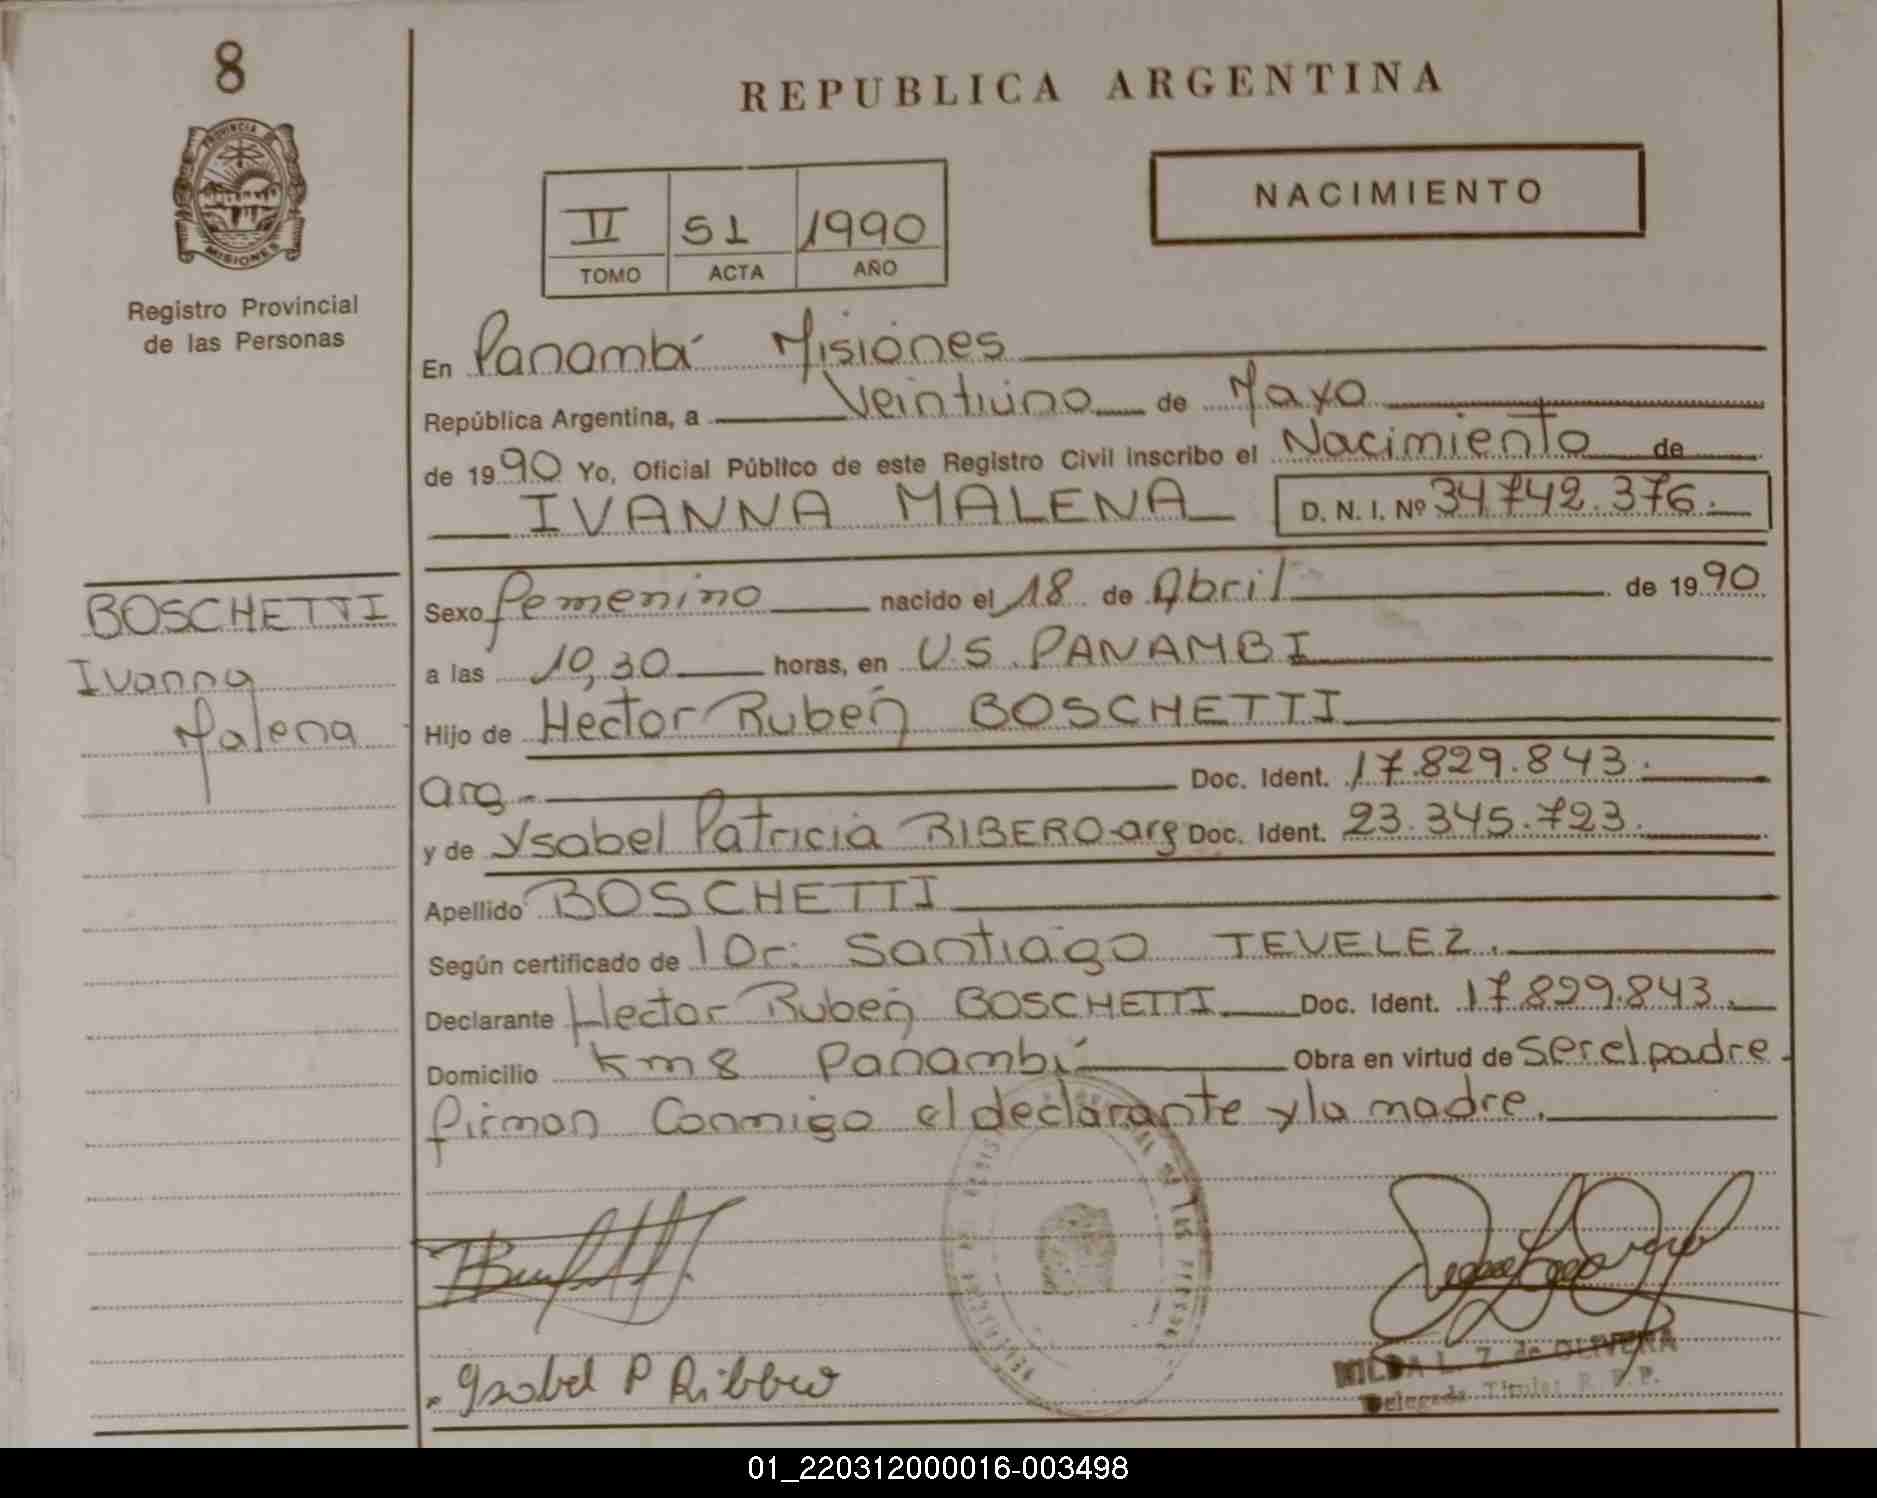 8
PROVINCIA DE
MISIONES
Registro Provincial
de las Personas
REPUBLICA ARGENTINA
NACIMIENTO
II 51 1990
TOMO ACTA AÑO
En Panambí Misiones
República Argentina, a Veintiuno de Mayo
de 1990 Yo, Oficial Público de este Registro Civil inscribo el Nacimiento de
IVANNA MALENA D. N. I. Nº 34.742.376.
BOSCHETTI
Ivanna
Malena
Sexo femenino nacido el 18 de Abril de 1990
a las 10,30 horas, en U.S. PANAMBI
Hijo de Hector Rubén BOSCHETTI
arg- Doc. Ident. 17.829.843.
y de Ysabel Patricia RIBERO-arg Doc. Ident. 23.345.723.
Apellido BOSCHETTI
Según certificado de Dr. Santiago TEVELEZ.
Declarante Hector Rubén BOSCHETTI Doc. Ident. 17.829.843.
Domicilio Km 8 Panambí Obra en virtud de ser el padre.
firman Conmigo el declarante y la madre.
DE LAS PERSONAS
Ysabel P Ribero
HILDA L. Z. de OLIVERA
Delegada Titular R. P. P.
01_220312000016-003498